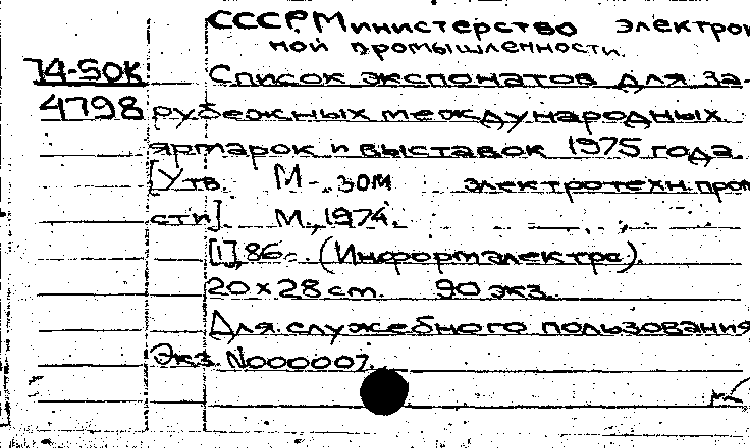 СССР. Министерство электрон
ной промышленности.
74-50к Список экспонатов для за-
4798 рубежных международных
ярмарок и выставок 1975 года.
[Утв. М- зом электротехн. пром
сти]. М., 1974.
[1], 86с. (Информэлектро).
20 х 28 cm. 90 экз.
Для служебного пользования
Экз. №000007.